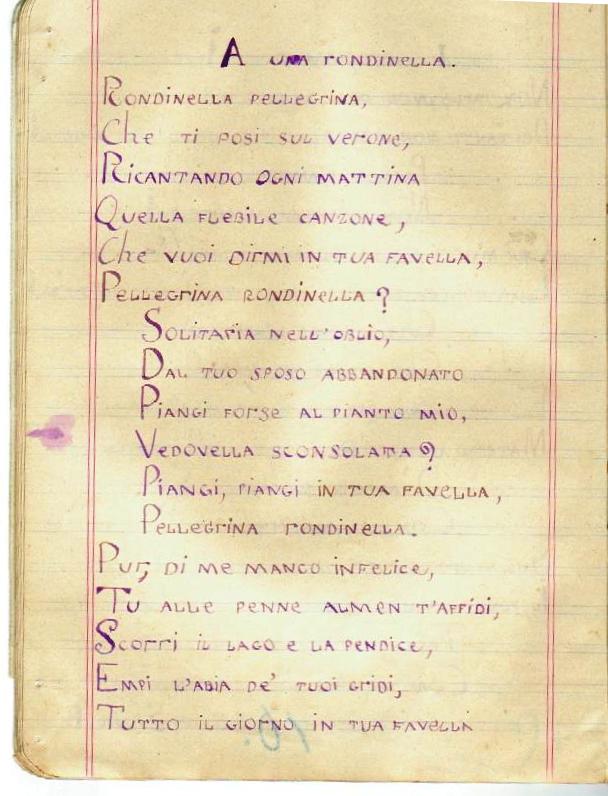 A una rondinella.
Rondinella pellegrina,
Che ti posi sul verone,
Ricantando ogni mattina
Quella flebile canzone,
Che vuoi dirmi in tua favella,
Pellegrina rondinella?
Solitaria nell'oblio,
Dal tuo sposo abbandonato
Piangi forse al pianto mio,
Vedovella sconsolata?
Piangi, piangi in tua favella,
Pellegrina rondinella.
Pur, di me manco infelice,
Tu alle penne almen t'affidi,
Scorri il lago e la pendice,
Empi l'abia de' tuoi gridi,
Tutto il giorno in tua favella